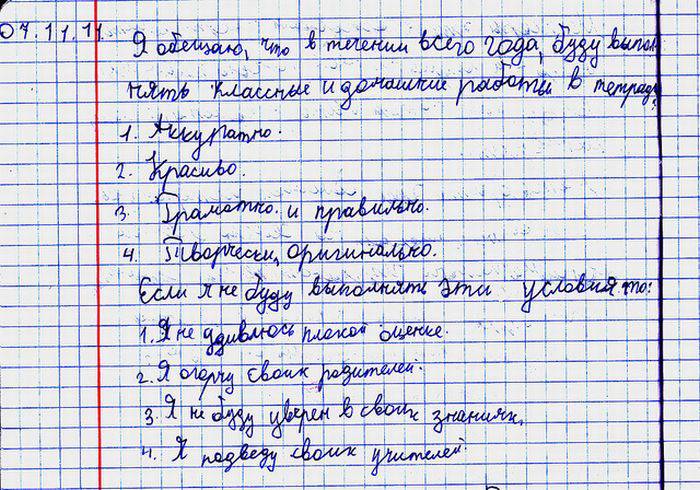 07.11.11. Я обещаю, что в течении всего года, буду выпол-
нять классные и домашние работы в тетради:
1. Аккуратно.
2. Красиво.
3. Грамотно. и правильно.
4. Творчески, оригинально.
Если я не буду выполнять эти условия то:
1. Я не удивлюсь плохой оценке.
2. Я огорчу своих родителей.
3. Я не буду уверен в своих знаниях.
4. Я подведу своих учителей.